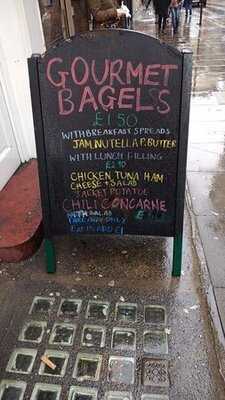 GOURMET
BAGELS
£1.50
WITH BREAKFAST SPREADS
JAM, NUTELLA P.BUTTER
WITH LUNCH FILLING
CHICKEN TUNA HAM
CHEESE + SALAD
JACKET POTATOE
CHILI CONCARNE
WITH SALAD
TAKE AWAY ONLY
EAT IN ADD £1